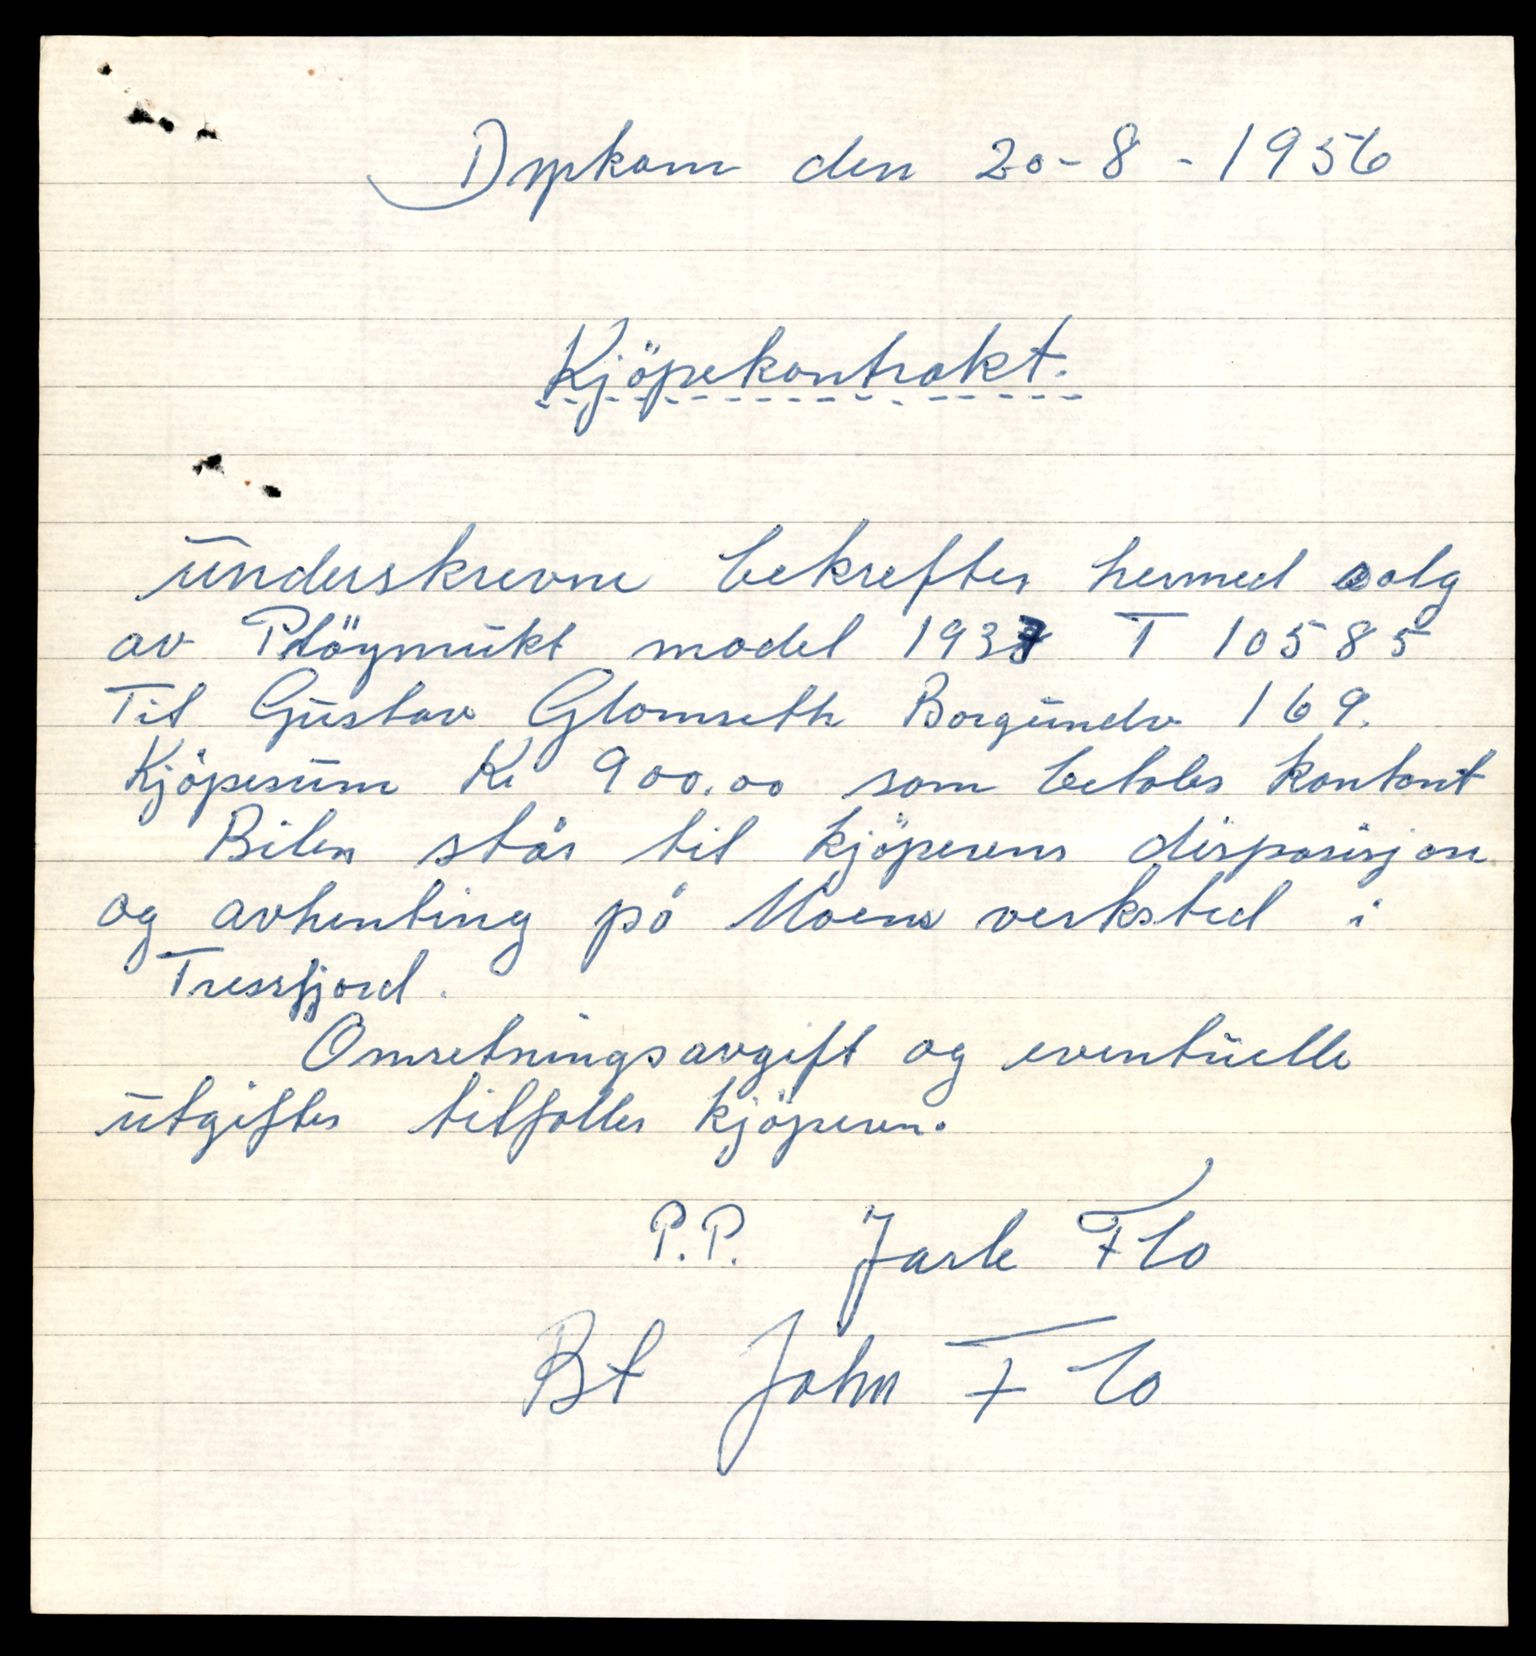 Dypkam den 20-8-1956
Kjöpekontrakt.
underskrevne bekrefter hermed salg
av Plöymukt model 1937 T 10585
Til Gustav Glomseth Borgundv 169.
Kjöpesum Kr 900.00 som betales kontant
Bilen står til kjöperens disposisjon
og avhenting på Moens verksted i
Tressfjord.
Omsetningsavgift og eventuelle
utgifter tilfaller kjöperen.
P.P. Jarle Flo
Bt John Flo